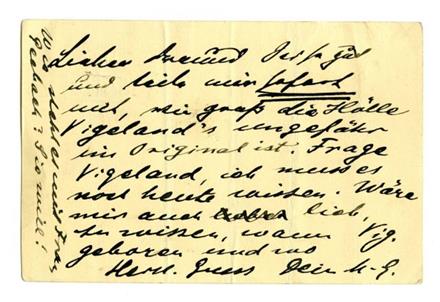 Lieber Freund Sei so gut
und teile mir sofort
mit, wie groß die Hölle
Vigeland's ungefähr
im Original ist. Frage
Vigeland, ich muss es
noch heute wissen. Wäre
mir auch lieb,
zu wissen, wann Vig.
geboren und wo
Herzl. Gruss Dein
Wie steht es mit Frau